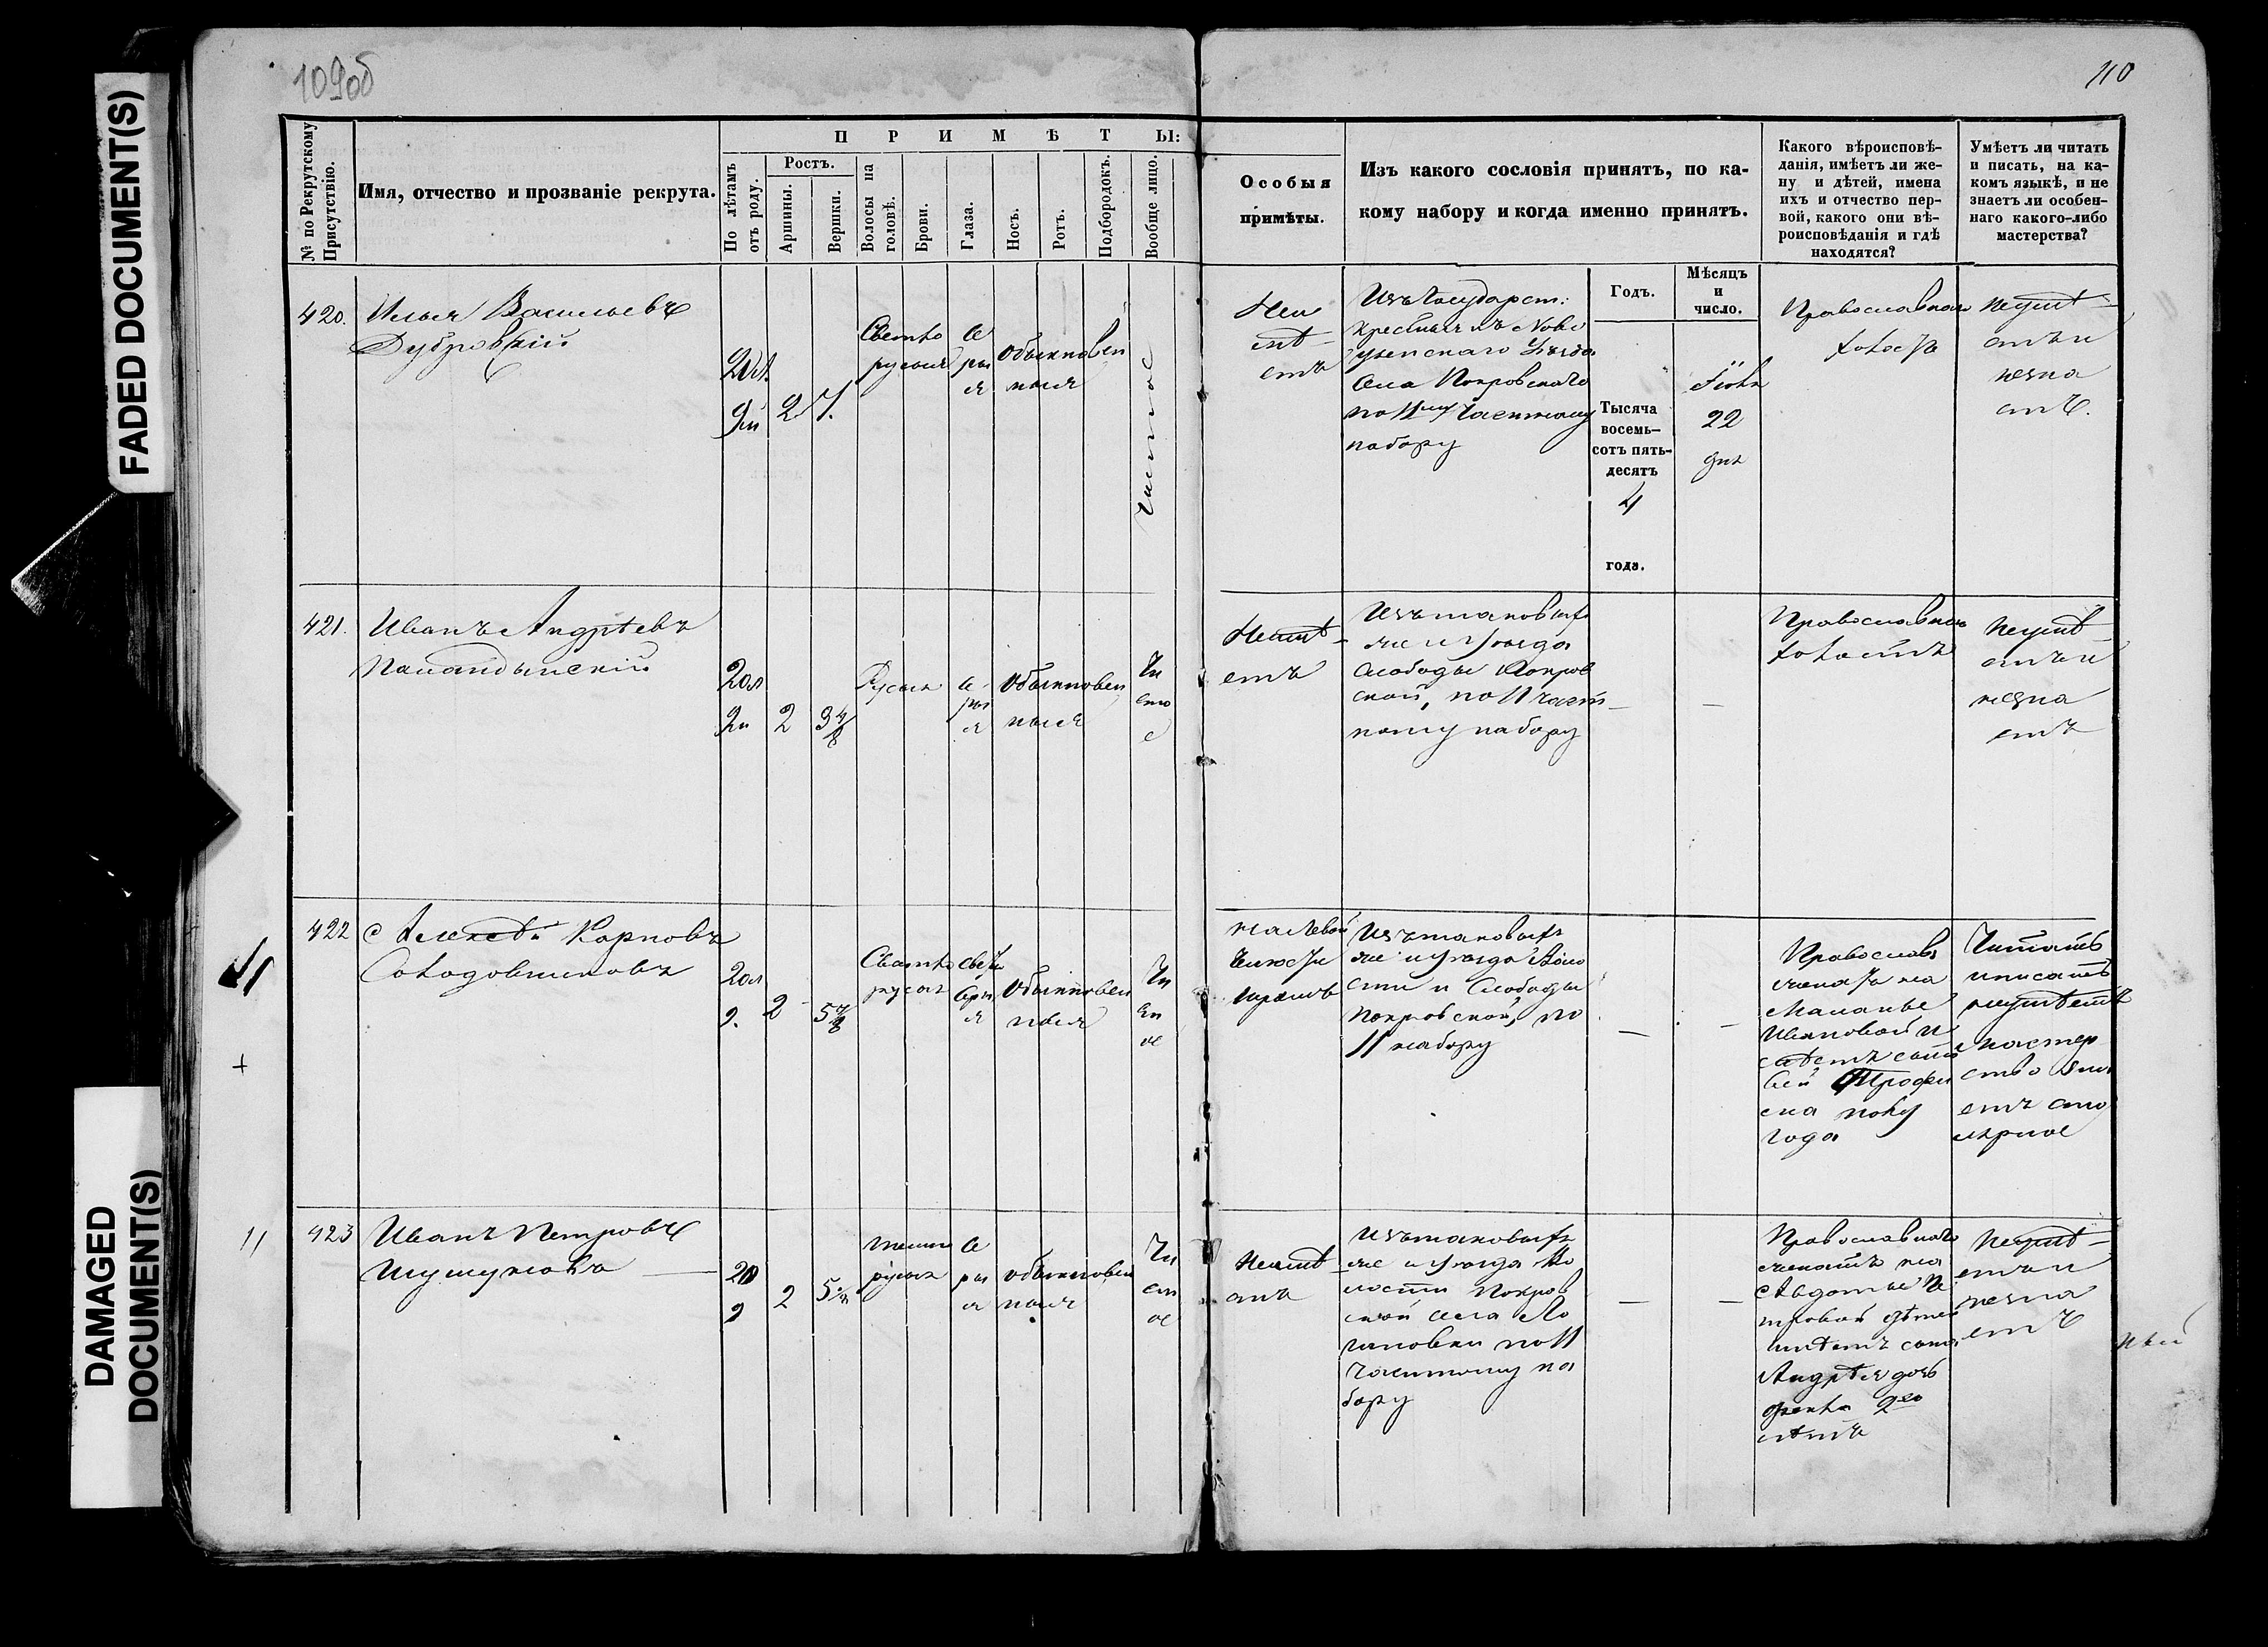 FADED DOCUMENT(S)
DAMAGED
DOCUMENT(S)
109об
110
№ по Рекрутскому
Присутствію.
Имя, отчество и прозваніе рекрута.
ПРИМѢТЫ:
По лѣтамъ
отъ роду.
Ростъ.
Аршины.
Вершки.
Волосы на
головѣ.
Брови.
Глаза.
Носъ.
Ротъ.
Подбородокъ.
Вообще лицо.
Особыя
примѣты.
Изъ какого сословія принятъ, по ка-
кому набору и когда именно принятъ.
Какого вѣроисповѣ-
данія, имѣетъ ли же-
ну и дѣтей, имена
ихъ и отчество пер-
вой, какого они вѣ-
роисповѣданія и гдѣ
находятся?
Умѣетъ ли читать
и писать, на ка-
комъ языкѣ, и не
знаетъ ли особен-
наго какого-либо
мастерства?
Годъ.
Мѣсяцъ
и
число.
420.
Илья Васильевъ
Дубровскій
9м
2
7.
Свѣтло
русыя
сѣ
ры
я
обыкновен
ныя
Чистое
Неи
мѣ
етъ
Изъ Государст:
крестьянъ Ново
узенскаго Уѣзда
села Покровскаго
по 11му частному
набору
Тысяча
восемь-
сотъ пять-
десятъ
4
года.
Іюля
22
дня
Православнаго
холостъ
неумѣ
етъ и
незна
етъ.
421.
Иванъ Андрѣевъ
20л
2м
2
3 4/8
Русыя
сѣ
ры
я
обыкновен
ныя
Чи
сто
е
Неимѣ
етъ
Изъ таковыхъ
же и уѣзда
Слободы Покров
ской, по 11 част
ному набору
Православнаго
холостъ
неумѣ
етъ и
незна
етъ
422
Алексѣй Карповъ
Солодовниковъ
20л
9.
2
5 4/8
Свѣтло
русыя
свѣтло
сѣры
я
обыкновен
ныя
Чи
ст
ое
на левой
челюсти
шрамъ
Изъ таковыхъ
же и уѣзда Воло
сти и Слободы
Покровской, по
11 набору
Православн
женатъ на
Маланье
Ивановой и
имѣетъ сына
Трофи
ма полу
года
Читать
и писать
неумѣетъ
мастер
ство зна
етъ сто
лярное
11
423
Иванъ Петровъ
20
9
2
5
темно
русыя
сѣ
ры
я
обыкновен
ныя
Чи
ст
ое
Неимѣ
етъ
Изъ таковыхъ
же и уѣзда Во
лости Покров
ской села Ло
гиновки по 11
частному на
бору
Православнаго
женатъ на
Авдотье Пе
тровой дѣтей
имѣетъ сына
Андрѣя дочь
Феклу 2хъ
лѣтъ
Неумѣ
етъ и
незна
етъ